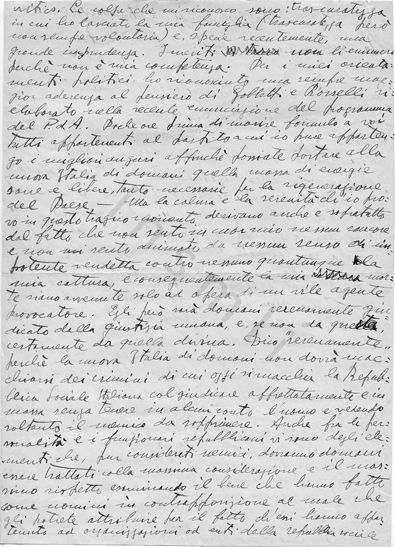 critico. Le colpe che mi riconosco sono: trascuratezza
in cui ho lasciato la mia famiglia (trascuratezza però
non sempre volontaria) e, specie recentemente, una
grande imprudenza. I meriti non li enumero
perché non è mia competenza. Per i miei orienta-
menti politici ho riconosciuto una sempre mag-
gior aderenza al pensiero di Gobetti e Rosselli ri-
elaborato nella recente enunciazione del programma
del P.d'A. Poche ore prima di morire formulo a voi
tutti appartenenti al partito a cui io pure apparten-
go i migliori auguri affinché possiate portare alla
nuova Italia di domani quella massa di energie
sane e libere, tanto necessarie per la rigenerazione
del Paese — Ma la calma e la serenità che io pro-
vo in questo tragico momento, derivano anche e soprattutto
dal fatto che non sento in me nessun rancore
e non mi sento animato da nessun senso di im-
potente vendetta contro nessuno quantunque la
mia cattura, e conseguentemente la mia mor-
te siano avvenute solo ad opera di un vile agente
provocatore. Egli però sarà domani serenamente giu-
dicato dalla giustizia umana, e se non da questa
certamente da quella divina. Dico "serenamente"
perché la nuova Italia di domani non dovrà mac-
chiarsi dei crimini di cui oggi si macchia la Repub-
blica Sociale Italiana col giudicare affrettatamente e in
massa senza tenere in alcun conto l'uomo e vedendo
soltanto il nemico da sopprimere. Anche fra le per-
sonalità e i funzionari repubblicani vi sono degli ele-
menti che, pur considerati nemici, dovranno domani
essere trattati colla massima considerazione e il mas-
simo rispetto esaminando il bene che hanno fatto
come uomini in contrapposizione al male che
gli potrete attribuire per il fatto di essi hanno appar-
tenuto ad organizzazioni od enti della repubblica sociale